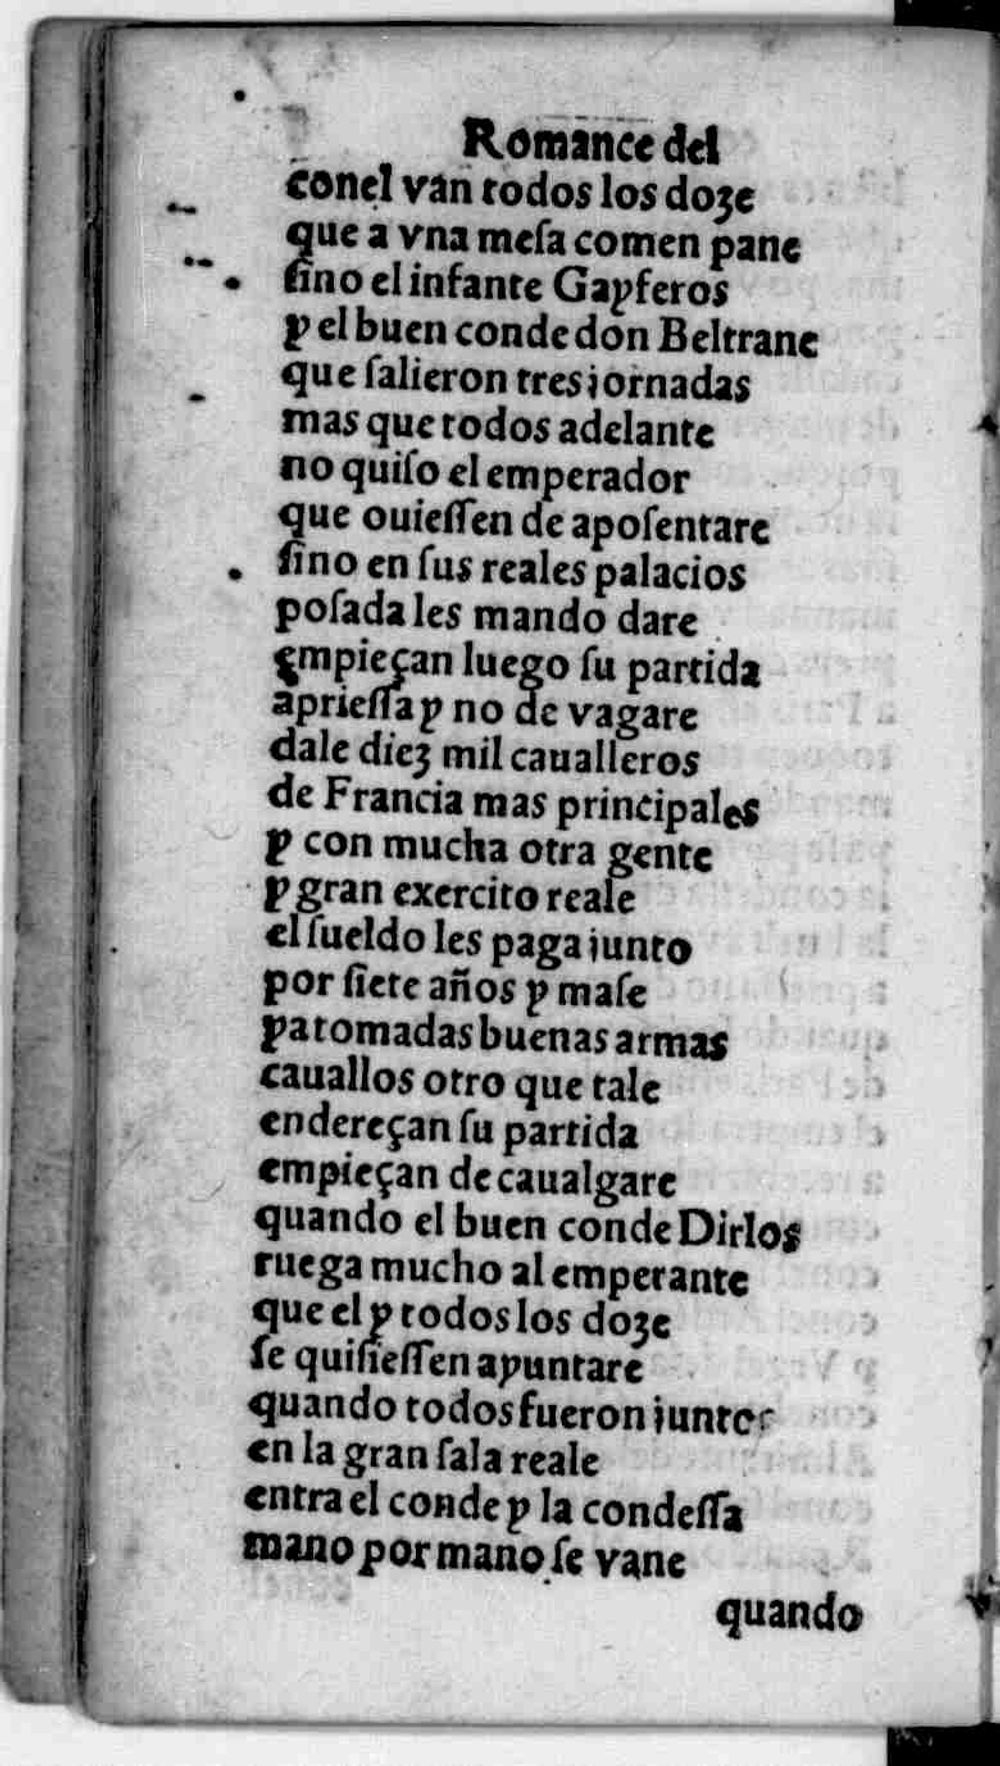 Romance del
conel van todos los doze
que a vna meſa comen pane
ſino el infante Gayferos
y el buen conde don Beltrane
que ſalieron tres jornadas
mas que todos adelante
no quiſo el emperador
que ouieſſen de apoſentare
ſino en ſus reales palacios
poſada les mando dare
empieçan luego ſu partida
aprieſſa y no de vagare
dale diez mil caualleros
de Francia mas principales
y con mucha otra gente
y gran exercito reale
el ſueldo les paga junto
por ſiete años y maſe
ya tomadas buenas armas
cauallos otro que tale
endereçan ſu partida
empieçan de caualgare
quando el buen conde Dirlos
ruega mucho al emperante
que el y todos los doze
ſe quiſieſſen ayuntare
quando todos fueron juntos
en la gran ſala reale
entra el conde y la condeſſa
mano por mano ſe vane
quando